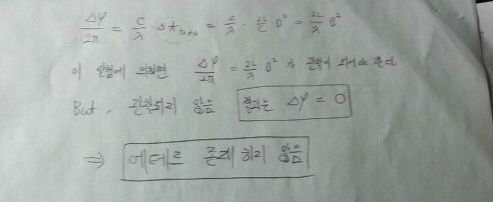 Δφ/2π = c/λ · Δt_total = c/λ · 2L/c β² = 2L/λ β²
이 실험에 의하면 Δφ/2π = 2L/λ β² 가 관측이 되어야 한다
But, 관측되지 않음 결과는 Δφ = 0
⇒ 에테르 존재하지 않음